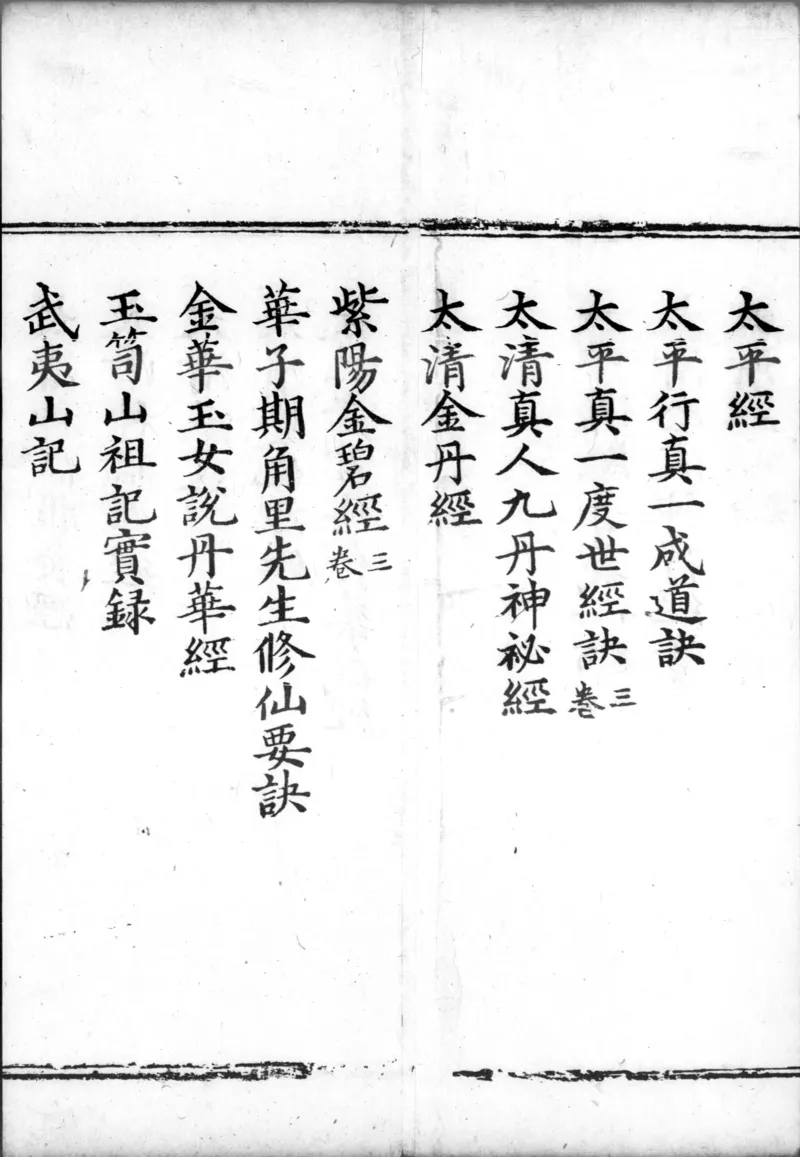 太平經
太平行真一成道訣
太平真一度世經訣三卷
太清真人九丹神祕經
太清金丹經
紫陽金碧經三卷
華子期角里先生修仙要訣
金華玉女說丹華經
玉笥山祖記實録
武夷山記